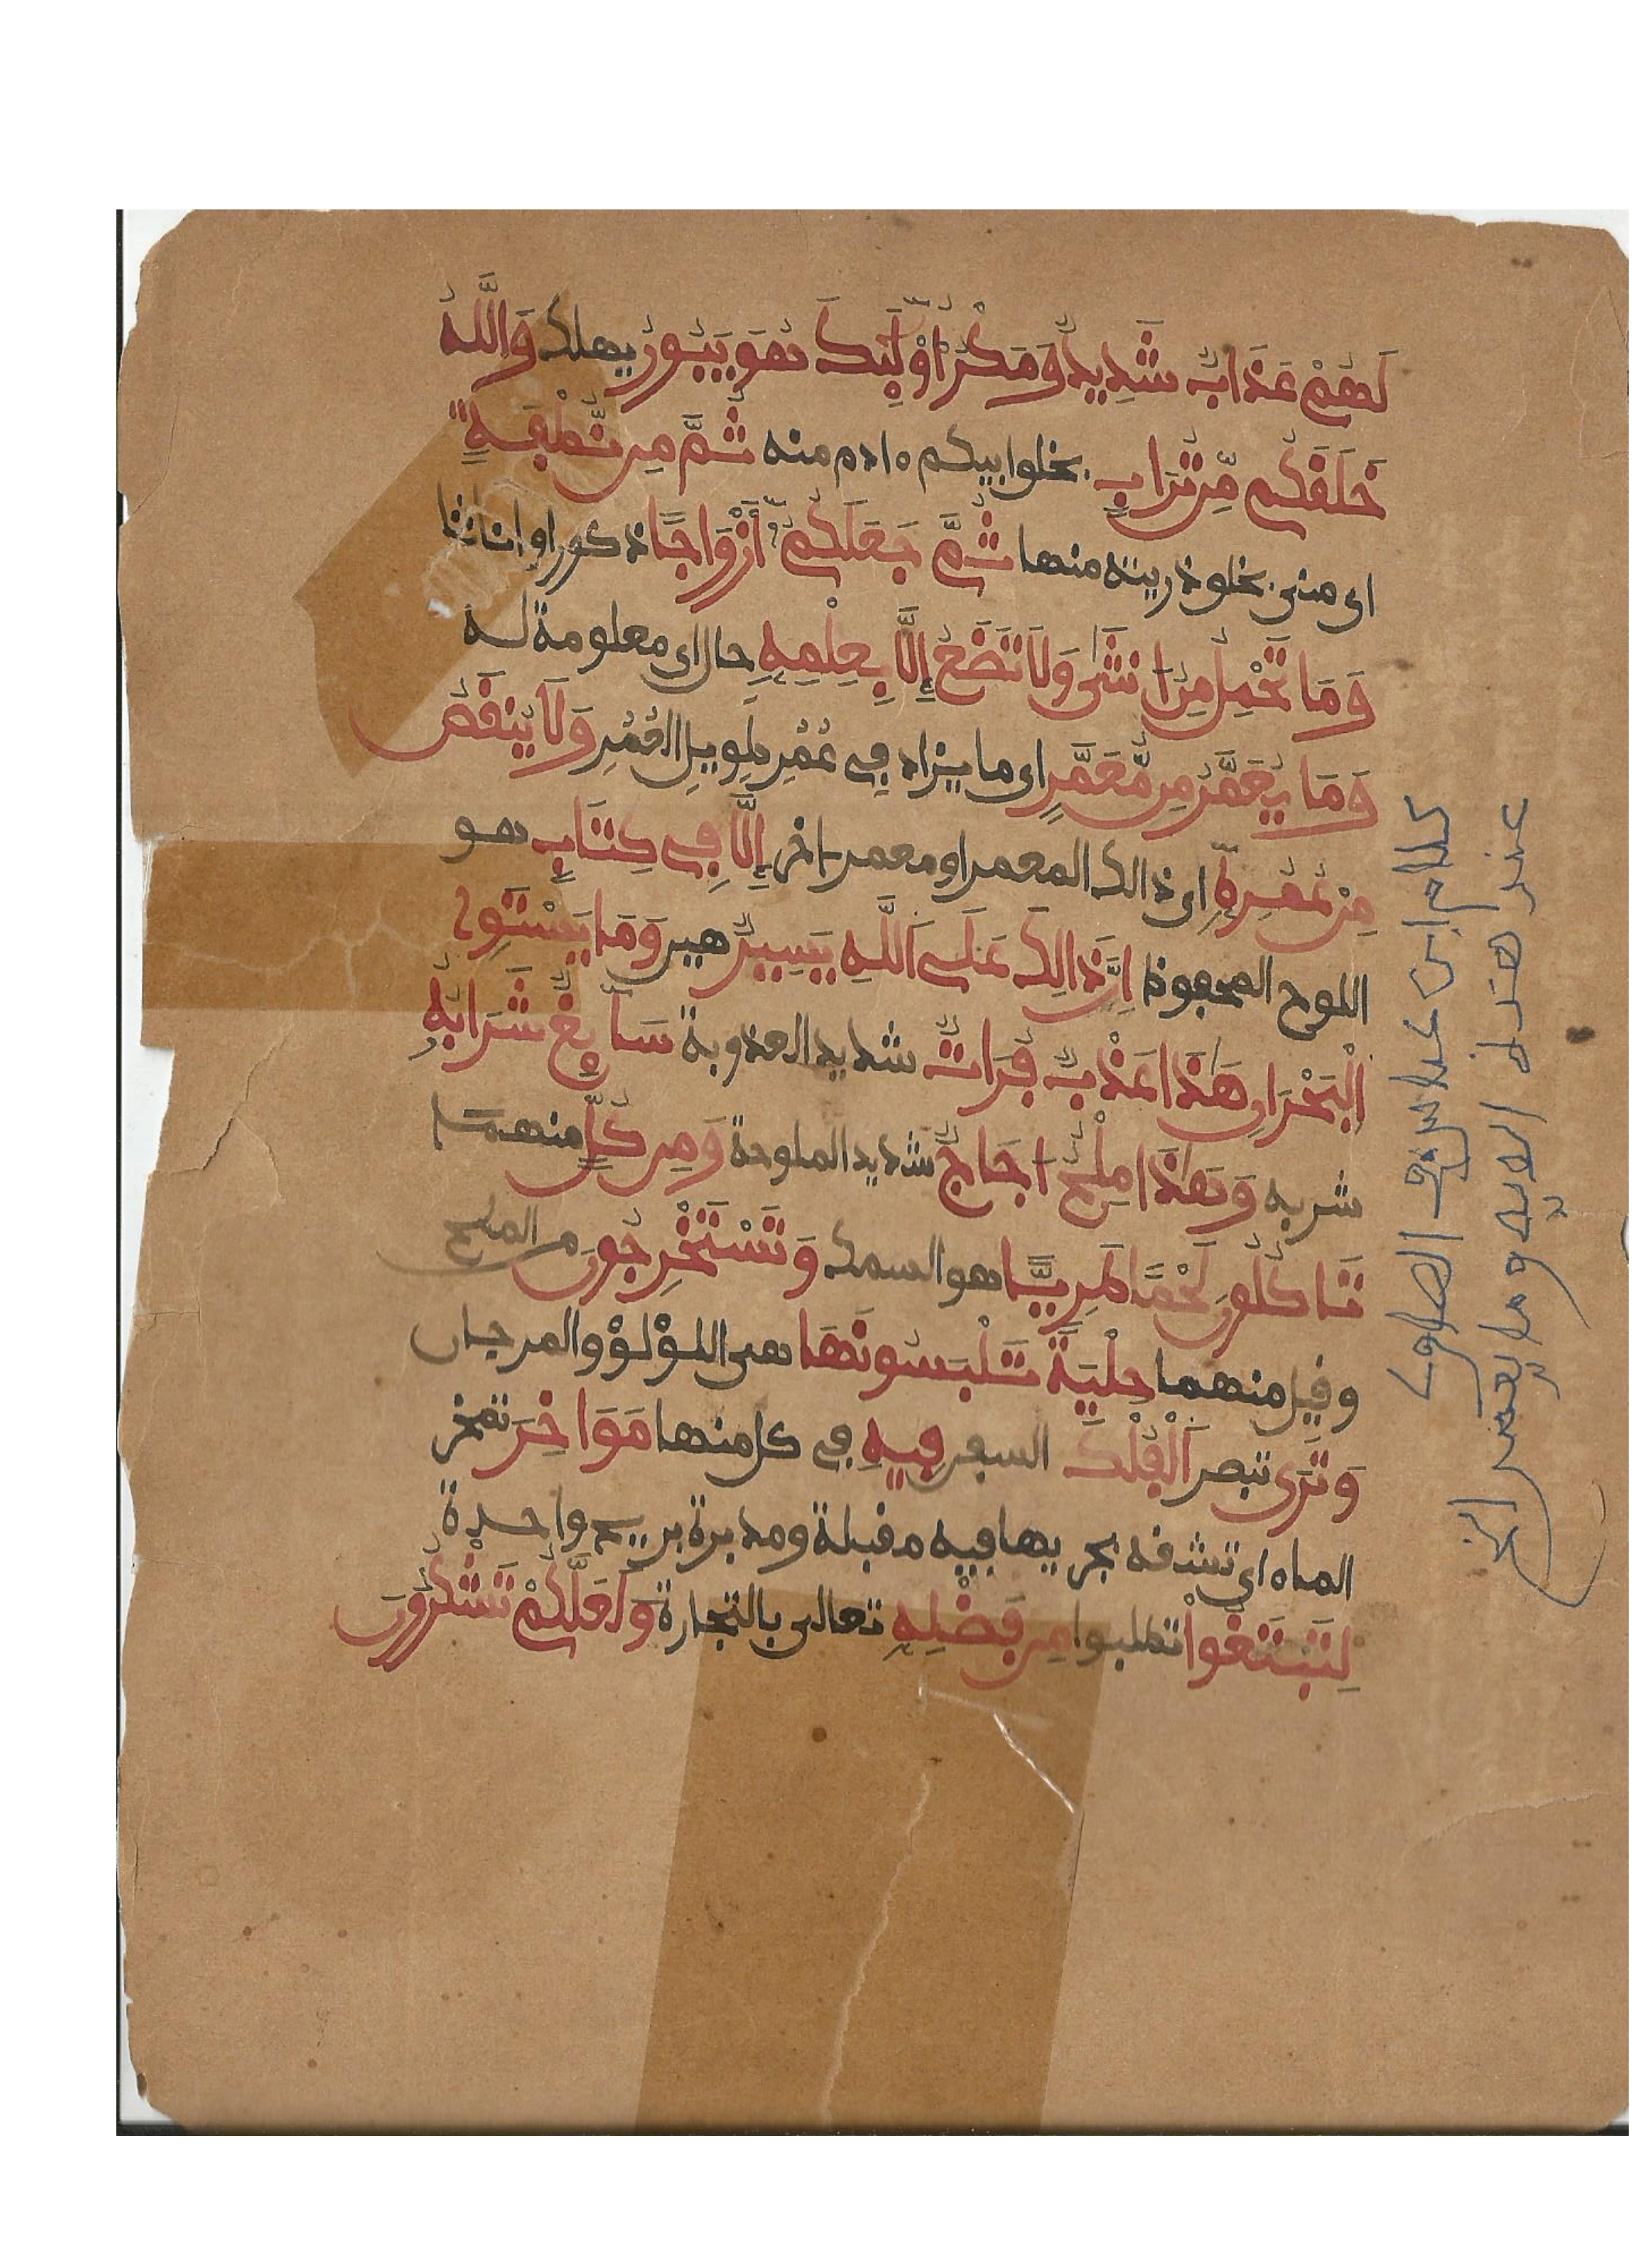 لَهُمْ عَذَابٌ شَدِيدٌ وَمَكْرُ أُوْلَٰٓئِكَ هُوَ يَبُورُ يهلك وَاللَّهُ
خَلَقَكُم مِّن تُرَابٍ بخلق ابيكم ءادم منه ثُمَّ مِن نُّطْفَةٍ
اى منى بخلق ذريته منها ثُمَّ جَعَلَكُمُ أَزْوَاجًا ذكورا او اناثا
وَمَا تَحْمِلُ مِنُ انثَىٰ وَلَا تَضَعُ إِلَّا بِعِلْمِهِ حال اى معلومة له
وَمَا يُعَمَّرُ مِن مُّعَمَّرٍ اى ما يزاد فِى عُمُرِ طويل العُمُرِ وَلَا يُنقَصُ
مِنْ عُمُرِهِ اى ذالك المعمر او معمر ءاخر إِلَّا فِى كِتَابٍ هو
اللوح المحفوظ إِنَّ ذَالِكَ عَلَى اَللَّهِ يَسِيرٌ هين وَمَا يَسْتَوِى
اَلْبَحْرَانِ هَٰذَا عَذْبٌ فُرَاتٌ شديد العذوبة سَآئِغٌ شَرَابُهُ
شربه وَهَٰذَا مِلْحٌ اجَاجٌ شديد الملوحة وَمِن كُلٍّ منهما
تَاكُلُونَ لَحْمًا طَرِيًّا هو السمك وَتَسْتَخْرِجُونَ من الملح
وقيل منهما حِلْيَةً تَلْبَسُونَهَا هى اللؤلؤ والمرجان
وَتَرَى تبصر اَلْفُلْكَ السفن فِيهِ فى كل منها مَوَاخِرَ تمخر
الماء اى تشقه بجريها فيه مقبلة ومدبرة بريح واحدة
لِتَبْتَغُواْ تطلبوا مِن فَضْلِهِ تعالى بالتجارة وَلَعَلَّكُمْ تَشْكُرُونَ
كلام ابن عباس فى الصاوى
عند هذه الاية وما يعمر الخ